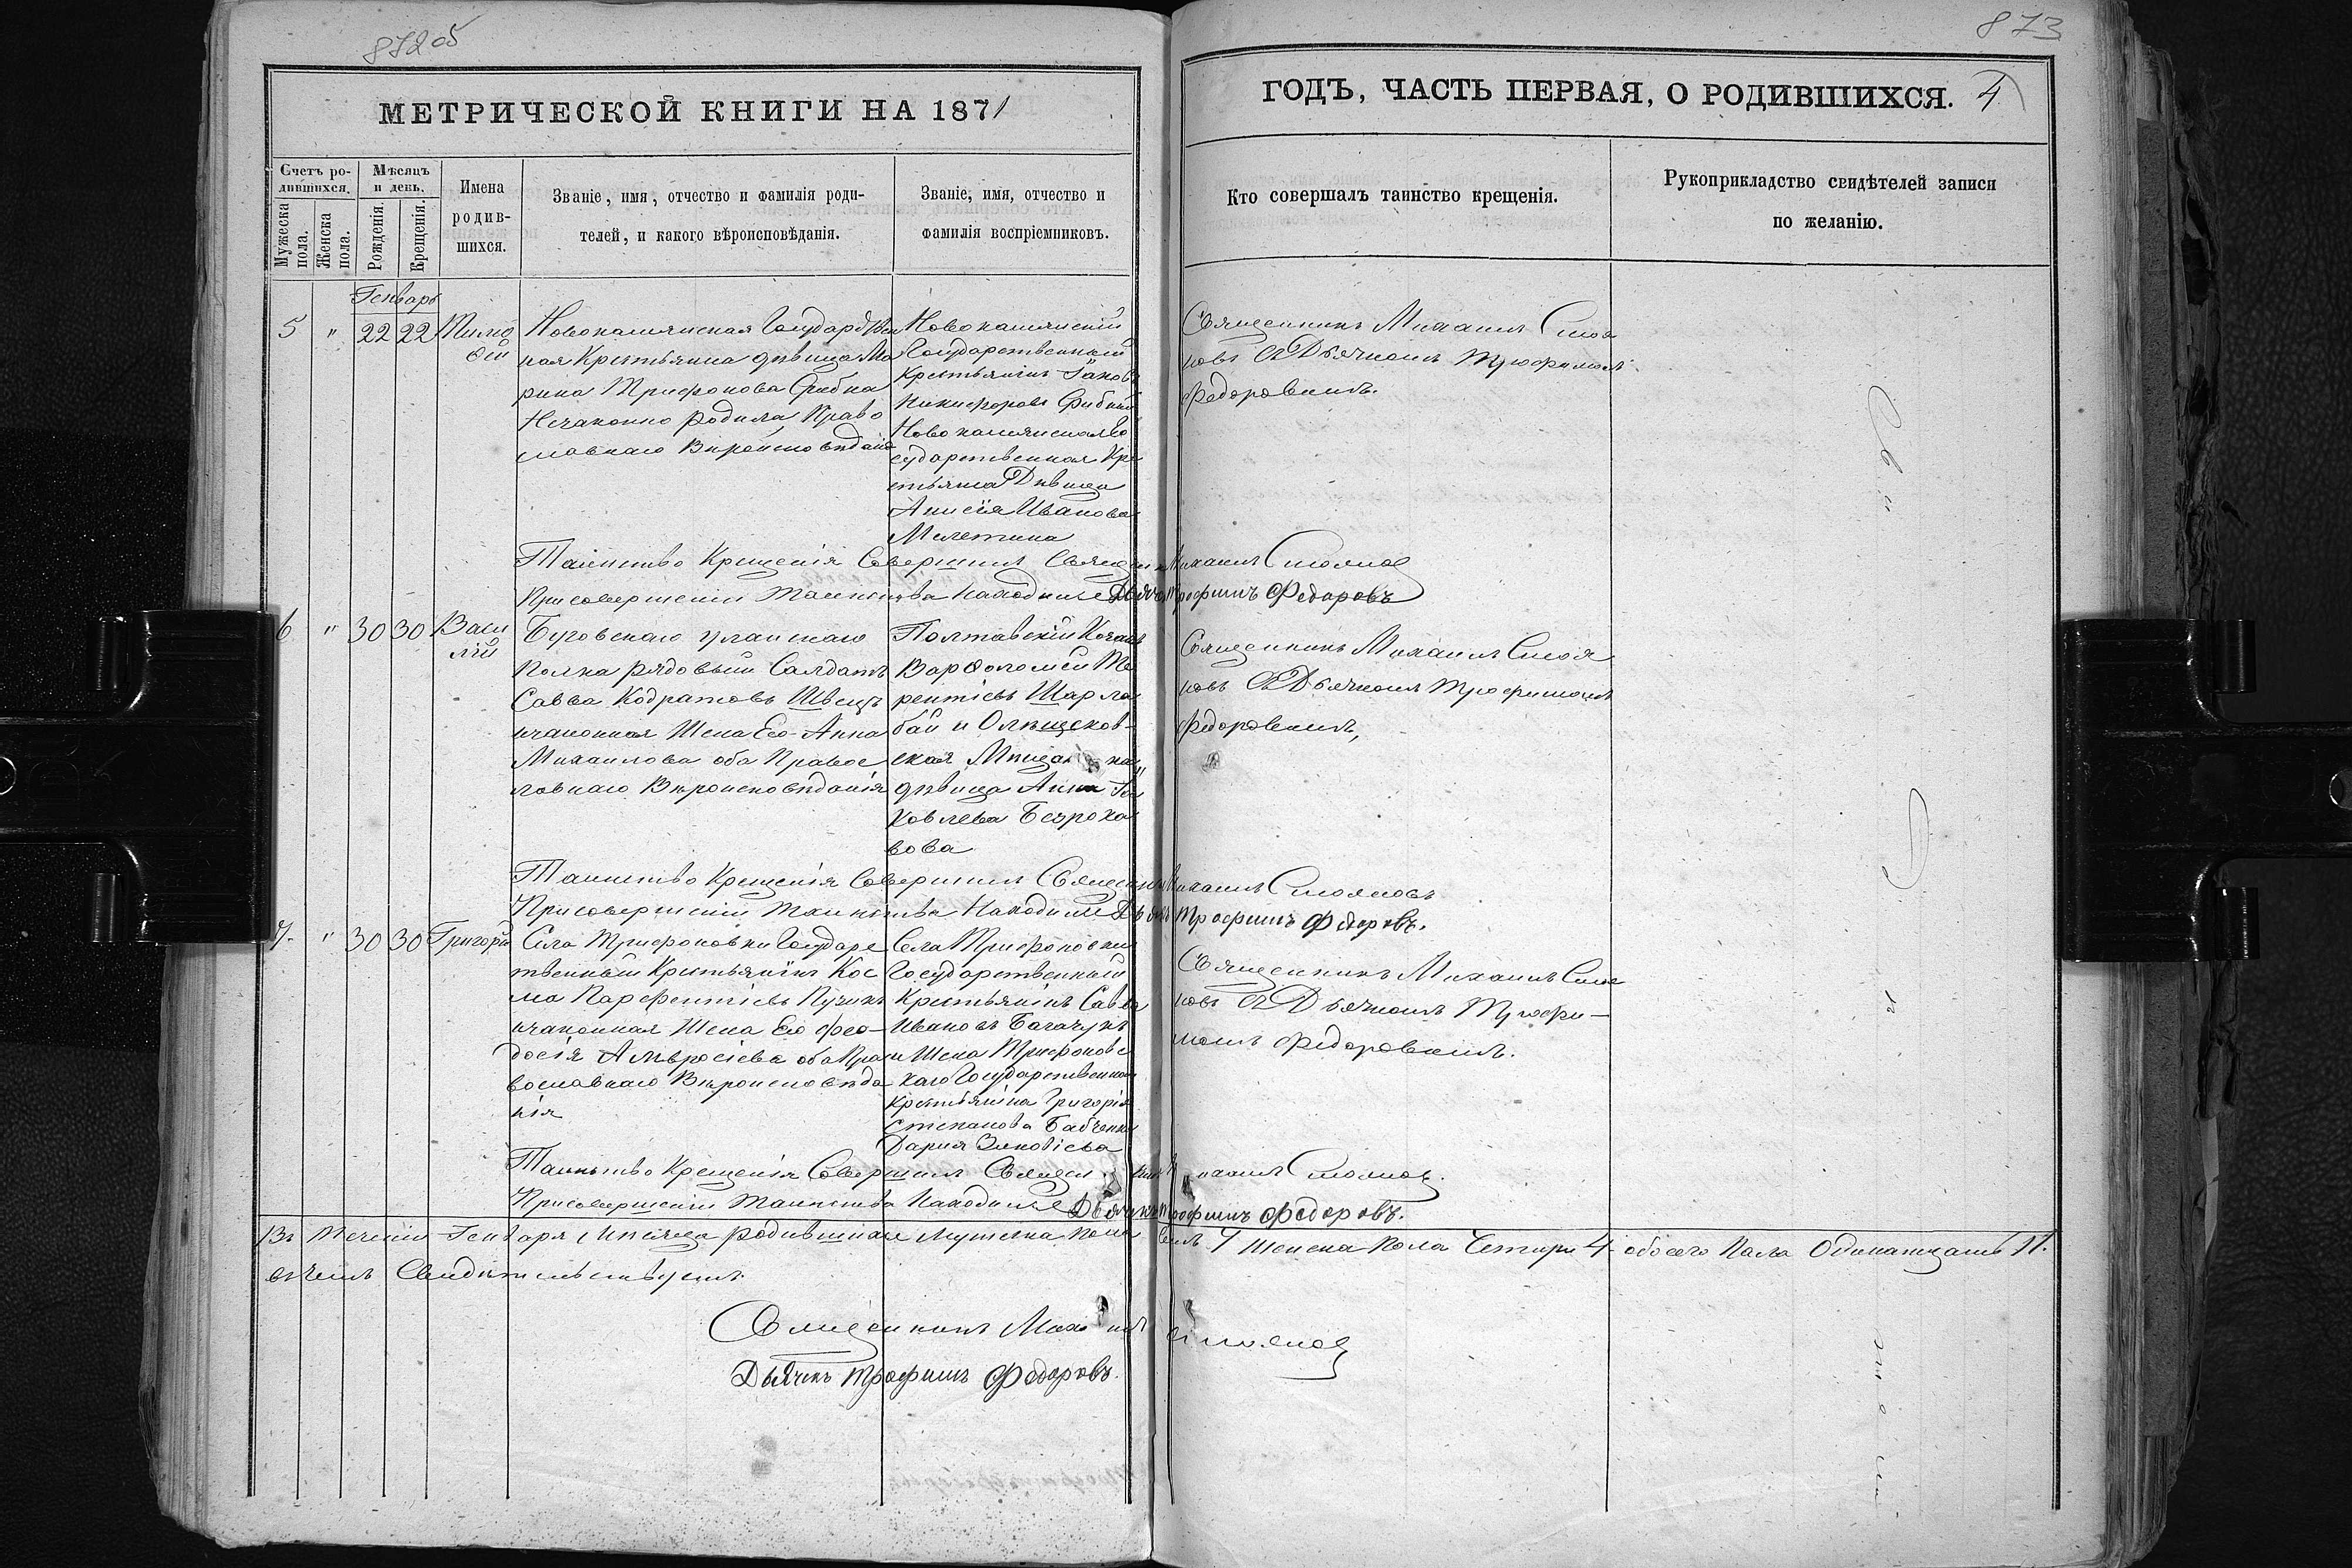 872 об
873
МЕТРИЧЕСКОЙ КНИГИ НА 1871
ГОДЪ, ЧАСТЬ ПЕРВАЯ, О РОДИВШИХСЯ. 4
Счетъ ро-
дившихся.
Мужеска
пола.
Женска
пола.
Мѣсяцъ
и день.
Рожденія.
Крещенія.
Имена
родив-
шихся.
Званіе, имя, отчество и фамилія роди-
телей, и какого вѣроисповѣданія.
Званіе, имя, отчество и
фамилія воспріемниковъ.
Кто совершалъ таинство крещенія.
Рукоприкладство свидѣтелей записи
по желанію.
Генварь
5 " 22 22
Новокамянская Государствен
ная Крестьянка дѣвица Ма
рина Трифонова Грибна
Незаконно родила Право
славнаго Вѣроисповѣданія
Новокамянскій
Государственный
Крестьянинъ Іаковъ
Никифоровъ
Новокамянская Го
сударственная Кре
стьянка Дѣвица
Анисія Иванова
Милетина
Священникъ Михаилъ Смоя
новъ съ Дьячкомъ Трофимомъ
Федоровымъ.
Таинство Крещенія Совершилъ Священникъ Михаилъ Смояновъ
При совершеніи Таинства Находился Дьячекъ Трофимъ Федоровъ
6 " 30 30 Васи
лій
Буговскаго уланскаго
полка рядовый Салдатъ
Савва Кодратовъ Швецъ
изаконная Жена Его Анна
Михаилова оба Правос
лавнаго Вѣроисповѣданія
Полтавскій Козакъ
Варфоломей Те
рентіевъ Шарла
бай и Олѣщков-
ская Мѣщанка
дѣвица Анна Іа
ковлева Безрока
вова
Священникъ Михаилъ Смоя
новъ съ Дьячкомъ Трофимомъ
Федоровымъ,
Таинство Крещенія Совершилъ Священникъ Михаилъ Смояновъ
При совершеніи Таинства Находился Дьячекъ Трофимъ Федоровъ.
7. " 30 30 Григорій
Села Трифоновки Государс
твенный Крестьянинъ Кос
ма Парфентіевъ
изаконная Жена Его Фео-
досія Амвросіева оба Пра
вославнаго Вѣроисповѣда
нія
Села Трифоновки
Государственный
Крестьянинъ Савва
Ивановъ
и Жена Трифоновс
каго Государственнаго
Крестьянина Григорія
Степанова Бабченка
Дарія Зиновіева
Священникъ Михаилъ Смоя
новъ съ Дьячкомъ Трофи-
момъ Федоровымъ.
Таинство Крещенія Совершилъ Священникъ Михаилъ Смояновъ.
При совершеніи Таинства Находился Дьячекъ Трофимъ Федоровъ.
Въ теченіи Генваря Мѣсяца родившихся Мужска пола 7 Женска пола Четыри 4 обоего пола Одинатцать 11.
въ чемъ Свидѣтельствуемъ
Священникъ Михаилъ Смояновъ
Дьячекъ Трофимъ Федоровъ.